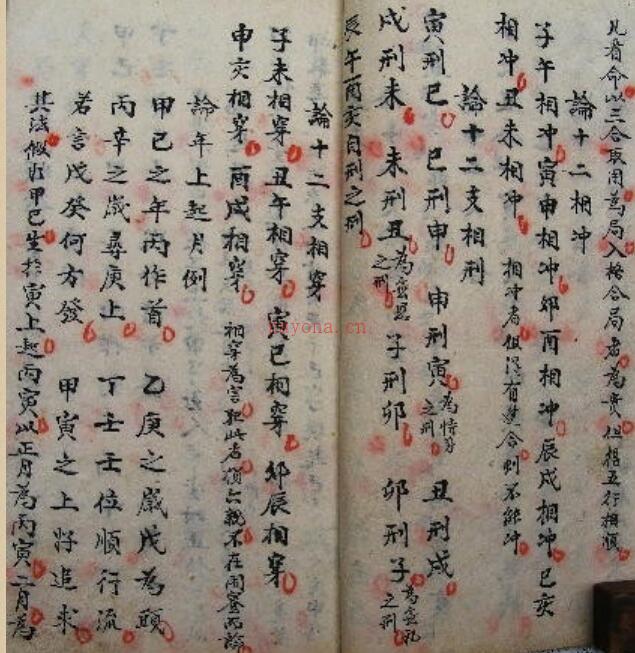 凡看命以三合取用為局入格合局者為貴但招五行相順
論十二相冲
子午相冲寅申相冲卯酉相冲辰戌相冲巳亥
相冲丑未相冲 相冲者但得有合則不能冲
論十二支相刑
寅刑巳 巳刑申 申刑寅為恃势之刑 丑刑戌
戌刑未 未刑丑為無恩之刑 子刑卯 卯刑子為無礼之刑
辰午酉亥自刑之刑
論十二支相穿
子未相穿 丑午相穿 寅巳相穿 卯辰相穿
申亥相穿 酉戌相穿 相穿為害犯此者須六親不在
論年上起月例
甲己之年丙作首 乙庚之歲戊為頭
丙辛之歲尋庚上 丁壬壬位順行流
若言戊癸何方發 甲寅之上好追求
其法假如甲己生於寅上起丙寅以正月為丙寅二月為
nuyona.cn